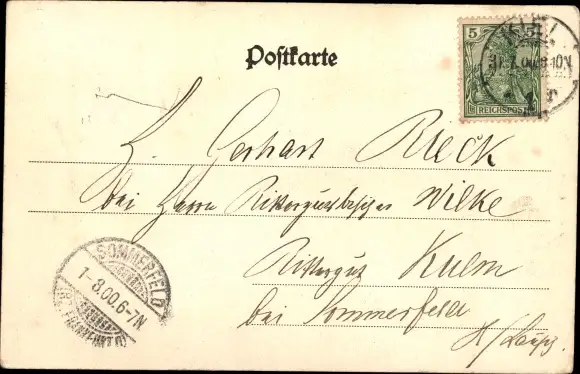 Postkarte
5 5
REICHSPOST
KIEL
31.7.00.8-10N
H. Gerhart Rieck
bei Herrn Rittergutsbesitzer Wilke
Rittergut Kulm
bei Sommerfeld
SOMMERFELD
1-8.00.6-7N